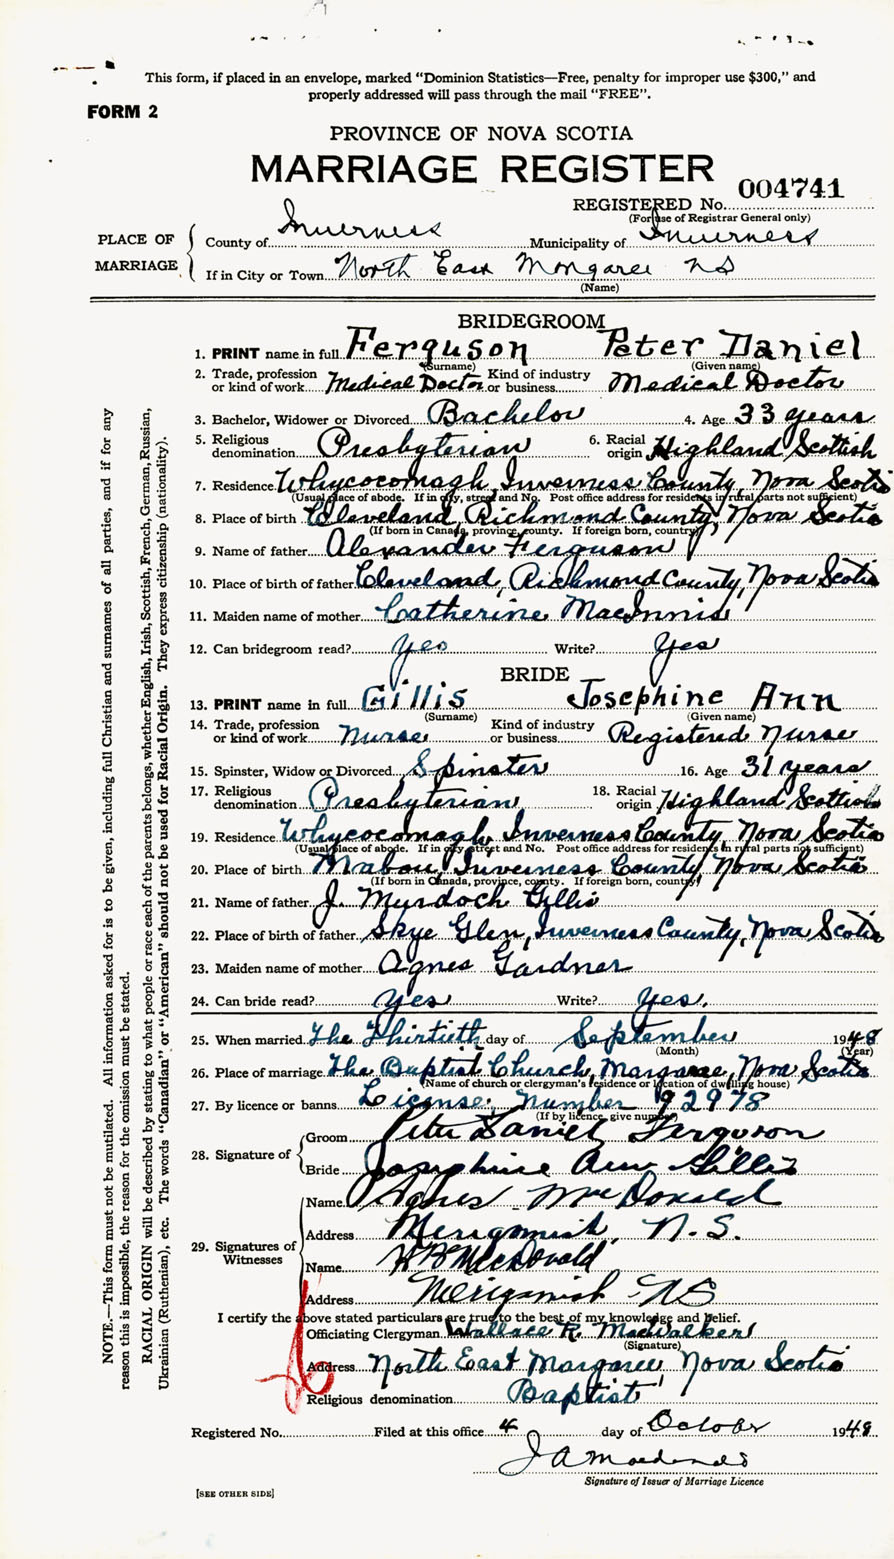 This form, if placed in an envelope, marked “Dominion Statistics—Free, penalty for improper use $300,” and
properly addressed will pass through the mail “FREE”.
FORM 2
PROVINCE OF NOVA SCOTIA
MARRIAGE REGISTER
004741
REGISTERED No.
(For use of Registrar General only)
PLACE OF MARRIAGE
County of Inverness Municipality of Inverness
If in City or Town North East Margaree NS
(Name)
BRIDEGROOM
1. PRINT name in full Ferguson Peter Daniel
(Surname) (Given name)
2. Trade, profession or kind of work Medical Doctor Kind of industry or business Medical Doctor
3. Bachelor, Widower or Divorced Bachelor 4. Age 33 years
5. Religious denomination Presbyterian 6. Racial origin Highland Scottish
7. Residence Whycocomagh, Inverness County, Nova Scotia
(Usual place of abode. If in city, street and No. Post office address for residents in rural parts not sufficient)
8. Place of birth Cleveland, Richmond County, Nova Scotia
(If born in Canada, province, county. If foreign born, country)
9. Name of father Alexander Ferguson
10. Place of birth of father Cleveland, Richmond County, Nova Scotia
11. Maiden name of mother Catherine MacInnis
12. Can bridegroom read? yes Write? Yes
BRIDE
13. PRINT name in full Gillis Josephine Ann
(Surname) (Given name)
14. Trade, profession or kind of work Nurse Kind of industry or business Registered Nurse
15. Spinster, Widow or Divorced Spinster 16. Age 31 years
17. Religious denomination Presbyterian 18. Racial origin Highland Scottish
19. Residence Whycocomagh, Inverness County, Nova Scotia
(Usual place of abode. If in city, street and No. Post office address for residents in rural parts not sufficient)
20. Place of birth Mabou, Inverness County, Nova Scotia
(If born in Canada, province, county. If foreign born, country)
21. Name of father J. Murdoch Gillis
22. Place of birth of father Skye Glen, Inverness County, Nova Scotia
23. Maiden name of mother Agnes Gardner
24. Can bride read? yes Write? yes.
25. When married The Thirtieth day of September 1948
(Month) (Year)
26. Place of marriage The Baptist Church, Margaree, Nova Scotia
(Name of church or clergyman's residence or location of dwelling house)
27. By licence or banns License: Number 92978
(If by licence, give number)
28. Signature of
Groom Peter Daniel Ferguson
Bride Josephine Ann Gillis
29. Signatures of Witnesses
Name Agnes McDonald
Address Merigomish, N.S.
Name McDonald
Address Merigomish NS
I certify the above stated particulars are true to the best of my knowledge and belief.
Officiating Clergyman Wallace R. MacWalker
(Signature)
Address North East Margaree, Nova Scotia
Religious denomination Baptist
Registered No. Filed at this office 4 day of October 1948
Signature of Issuer of Marriage Licence
[SEE OTHER SIDE]
NOTE.—This form must not be mutilated. All information asked for is to be given, including full Christian and surnames of all parties, and if for any
reason this is impossible, the reason for the omission must be stated.
RACIAL ORIGIN will be described by stating to what people or race each of the parents belongs, whether English, Irish, Scottish, French, German, Russian,
Ukrainian (Ruthenian), etc. The words “Canadian” or “American” should not be used for Racial Origin. They express citizenship (nationality).